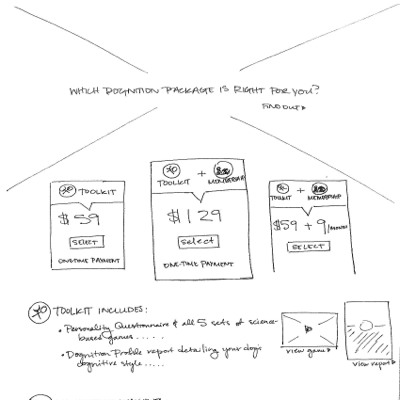 WHICH DOGNITION PACKAGE IS RIGHT FOR YOU?
FIND OUT
TOOLKIT
$59
SELECT
ONE-TIME PAYMENT
+
TOOLKIT MEMBERSHIP
$129
select
ONE-TIME PAYMENT
+
TOOLKIT MEMBERSHIP
$59 + 9/
SELECT
TOOLKIT INCLUDES:
• Personality Questionnaire & all 5 sets of science-
based games.....
• Dognition Profile report detailing your dog's
cognitive style.....
view game
view report